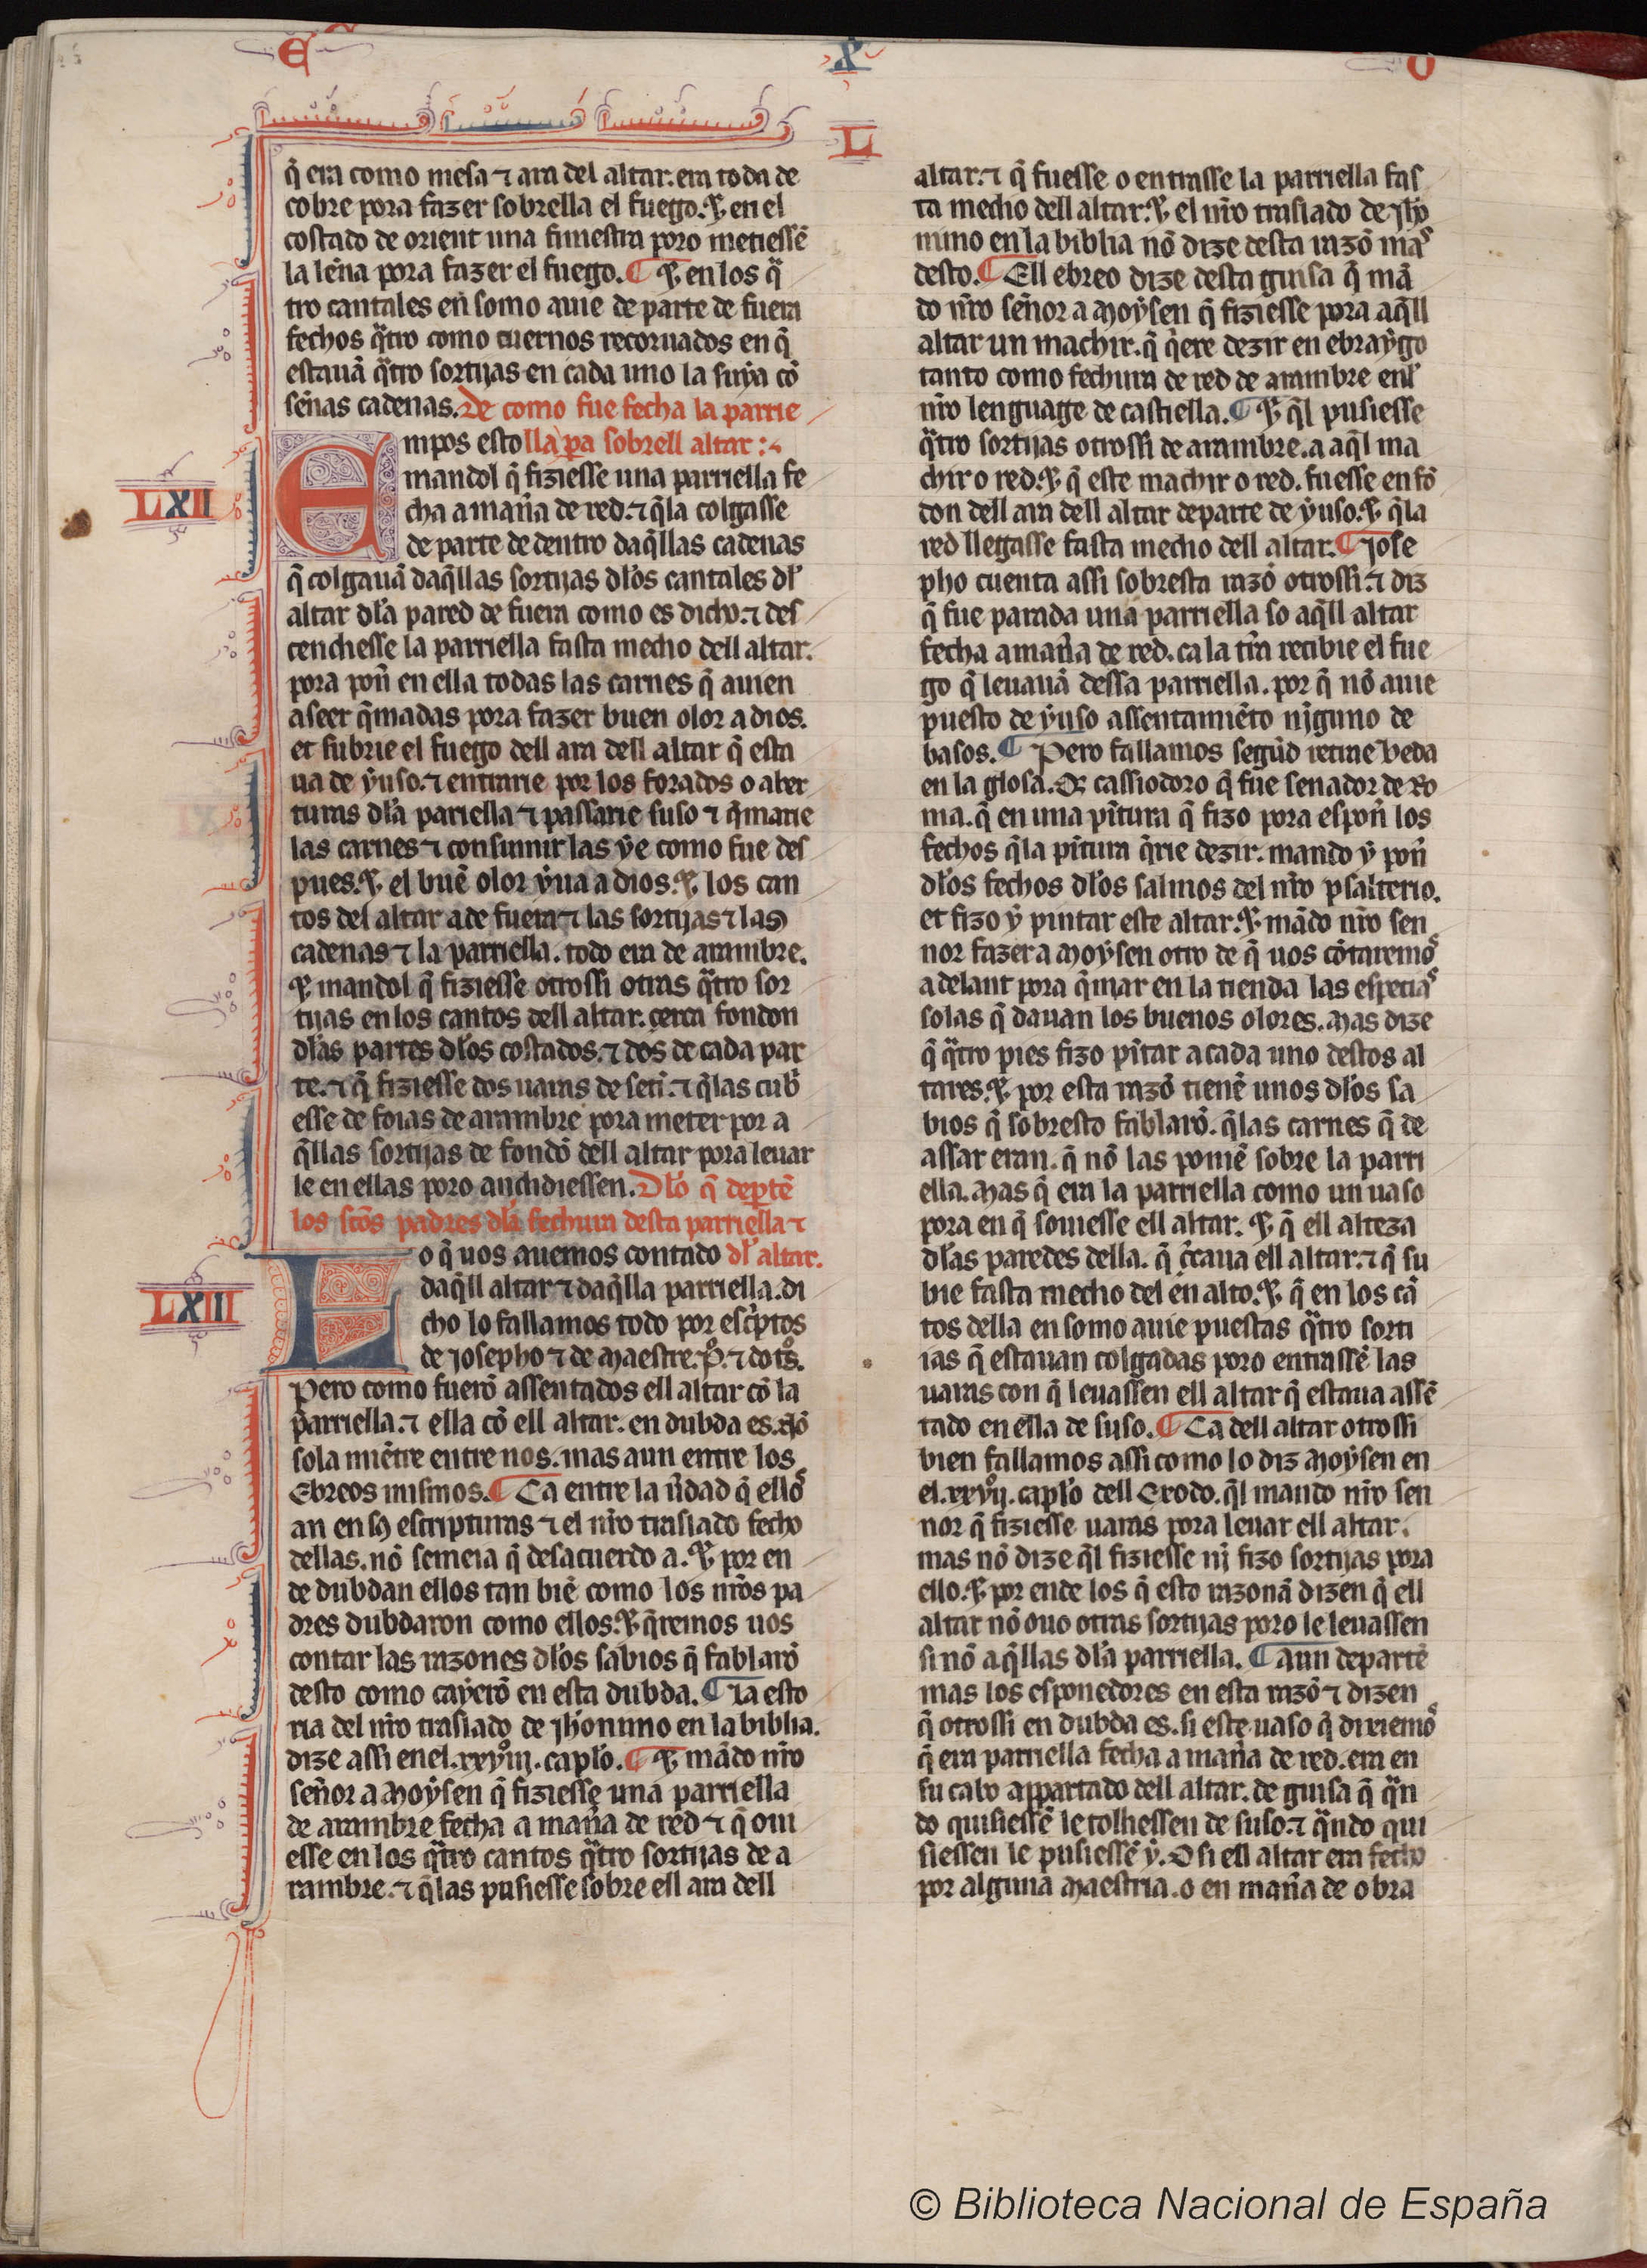 E X O
L
q̃ era como mesa ⁊ ara del altar. era toda de
cobre pora fazer sobrella el fuego. ⁊ en el
costado de orient una finiestra poro metiessẽ
la leña pora fazer el fuego. ¶ ⁊ en los q̃
tro cantales en somo auie de parte de fuera
fechos q̃tro como cuernos recoruados en q̃
estauã q̃tro sortijas en cada uno la suya cõ
señas cadenas. De como fue fecha la parrie
lla pa sobrell altar:
LXII
Empos esto
mandol q̃ fiziesse una parriella fe
cha a mañra de red. ⁊ q̃la colgasse
de parte de dentro daq̃llas cadenas
q̃ colgauã daq̃llas sortijas dłos cantales dł
altar dła pared de fuera como es dicho. ⁊ des
cendiesse la parriella fasta medio dell altar.
pora poñ en ella todas las carnes q̃ auien
a seer q̃madas pora fazer buen olor a dios.
et subrie el fuego dell ara dell altar q̃ esta
ua de yuso. ⁊ entrarie por los forados o aber
turas dła pariella ⁊ passarie suso ⁊ q̃marie
las carnes ⁊ consumir las ye como fue des
pues. ⁊ el buẽ olor yua a dios. ⁊ los can
tos del altar a de fuera ⁊ las sortijas ⁊ las
cadenas ⁊ la parriella. todo era de arambre.
⁊ mandol q̃ fiziesse otrossi otras q̃tro sor
tijas en los cantos dell altar. cerca fondon
dłas partes dłos costados. ⁊ dos de cada par
te. ⁊ q̃ fiziesse dos uaras de setĩ. ⁊ q̃las cub̃
esse de foias de arambre pora meter por a
q̃llas sortijas de fondõ dell altar pora leuar
le en ellas poro auchdiessen. Dło q̃ deptẽ
los sc̃os padres dła fechura desta parriella ⁊
dł altar.
LXIII
Lo q̃ uos auemos contado
daq̃ll altar ⁊ daq̃lla parriella. di
cho lo fallamos todo por esc̃ptos
de josepho ⁊ de Maestre. P̊. ⁊ dotr̊s.
Pero como fuerõ assentados ell altar cõ la
parriella. ⁊ ella cõ ell altar. en dubda es. nõ
sola miẽtre entre nos. mas aun entre los
Ebreos mismos. ¶ Ca entre la ũdad q̃ ellos
an en sus escripturas ⁊ el nr̃o traslado fecho
dellas. nõ semeia q̃ desacuerdo a. ⁊ por en
de dubdan ellos tan biẽ como los nr̃os pa
dres dubdaron como ellos. ⁊ q̃remos uos
contar las razones dłos sabios q̃ fablarõ
desto como cayerõ en esta dubda. ¶ La esto
ria del nr̃o traslado de jħonimo en la biblia.
dize assi en el. xxviij. capło. ¶ ⁊ mãdo nr̃o
señor a Moysen q̃ fiziesse una parriella
de arambre fecha a mañra de red ⁊ q̃ oui
esse en los q̃tro cantos q̃tro sortijas de a
rambre. ⁊ q̃las pusiesse sobre ell ara dell
altar. ⁊ q̃ fuesse o entrasse la parriella fas
ta medio dell altar. ⁊ el nr̃o traslado de jħo
nimo en la biblia nõ dize desta razõ mas
desto. ¶ Ell ebreo dize desta guisa q̃ mã
do nr̃o señor a Moysen q̃ fiziesse pora aq̃ll
altar un machir. q̃ q̃ere dezir en ebraygo
tanto como fechura de red de arambre enł
nr̃o lenguage de castiella. ¶ ⁊ q̃l pusiesse
q̃tro sortijas otrossi de arambre. a aq̃l ma
chir o red. ⁊ q̃ este machir o red. fuesse en fõ
don dell ara dell altar departe de yuso. ⁊ q̃la
red llegasse fasta medio dell altar. ¶ Jose
pho cuenta assi sobresta razõ otrossi. ⁊ diz
q̃ fue parada una parriella so aq̃ll altar
fecha a mañra de red. ca la tr̃ra recibie el fue
go q̃ leuauã dessa parriella. por q̃ nõ auie
puesto de yuso assentamiẽto nĩguno de
basos. ¶ Pero fallamos segũd retrae Beda
en la glosa. Q̃ cassiodoro q̃ fue senador de Ro
ma. q̃ en una pĩtura q̃ fizo pora espoñ los
fechos q̃la pĩtura q̃rie dezir. mando y poñ
dłos fechos dłos salmos del nr̃o psalterio.
et fizo y pintar este altar. ⁊ mãdo nr̃o sen
nor fazer a Moysen otro de q̃ uos cõtaremos
adelant pora q̃mar en la tienda las especias
solas q̃ dauan los buenos olores. Mas dize
q̃ q̃tro pies fizo pĩtar a cada uno destos al
tares. ⁊ por esta razõ tienẽ unos dłos sa
bios q̃ sobresto fablarõ. q̃las carnes q̃ de
assar eran. q̃ nõ las poniẽ sobre la parri
ella. Mas q̃ era la parriella como un uaso
pora en q̃ souiesse ell altar. ⁊ q̃ ell alteza
dłas paredes della. q̃ c̃caua ell altar. ⁊ q̃ su
bie fasta medio del en alto. ⁊ q̃ en los cã
tos della en somo auie puestas q̃tro sorti
ias q̃ estauan colgadas poro entrassẽ las
uaras con q̃ leuassen ell altar q̃ estaua assẽ
tado en ella de suso. ¶ Ca dell altar otrossi
bien fallamos assi como lo diz Moysen en
el. xxvij. capło dell Exodo. q̃l mando nr̃o sen
nor q̃ fiziesse uaras pora leuar ell altar.
mas nõ dize q̃l fiziesse nj̃ fizo sortijas pora
ello. ⁊ por ende los q̃ esto razonã dizen q̃ ell
altar nõ ouo otras sortijas poro le leuassen
si nõ aq̃llas dła parriella. ¶ aun departẽ
mas los esponedores en esta razõ ⁊ dizen
q̃ otrossi en dubda es. si este uaso q̃ dixiemos
q̃ era parriella fecha a mañra de red. era en
su cabo appartado dell altar. de guisa q̃ q̃n
do quisiessẽ le tolliessen de suso. ⁊ q̃ndo qui
siessen le pusiessẽ y. O si ell altar era fecho
por alguna Maestria. o en mañra de obra
© Biblioteca Nacional de España